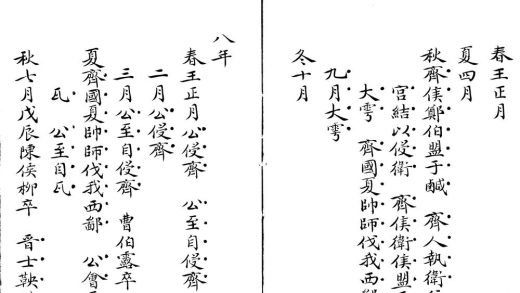 春王正月
夏四月
秋齊侯鄭伯盟于鹹　齊人執衛
宮結以侵衛　齊侯衛侯盟
大雩　齊國夏帥師伐我西鄙
九月大雩
冬十月
八年
春王正月公侵齊　公至自侵齊
二月公侵齊
三月公至自侵齊　曹伯露卒
夏齊國夏帥師伐我西鄙　公會
瓦　公至自瓦
秋七月戊辰陳侯柳卒　晉士鞅